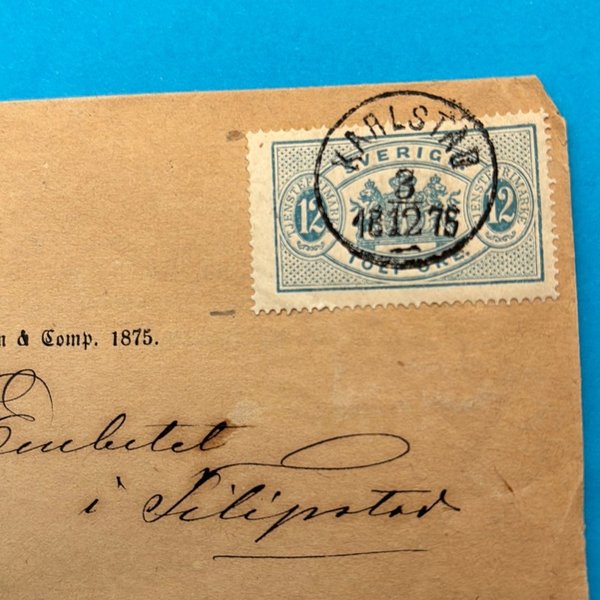 KARLSTAD
3
1812 75
SVERIGE
TJENSTEFRIMÄRKE
12
TJENSTEFRIMÄRKE
12
TOLF ÖRE.
n & Comp. 1875.
Embetet
i Filipstad